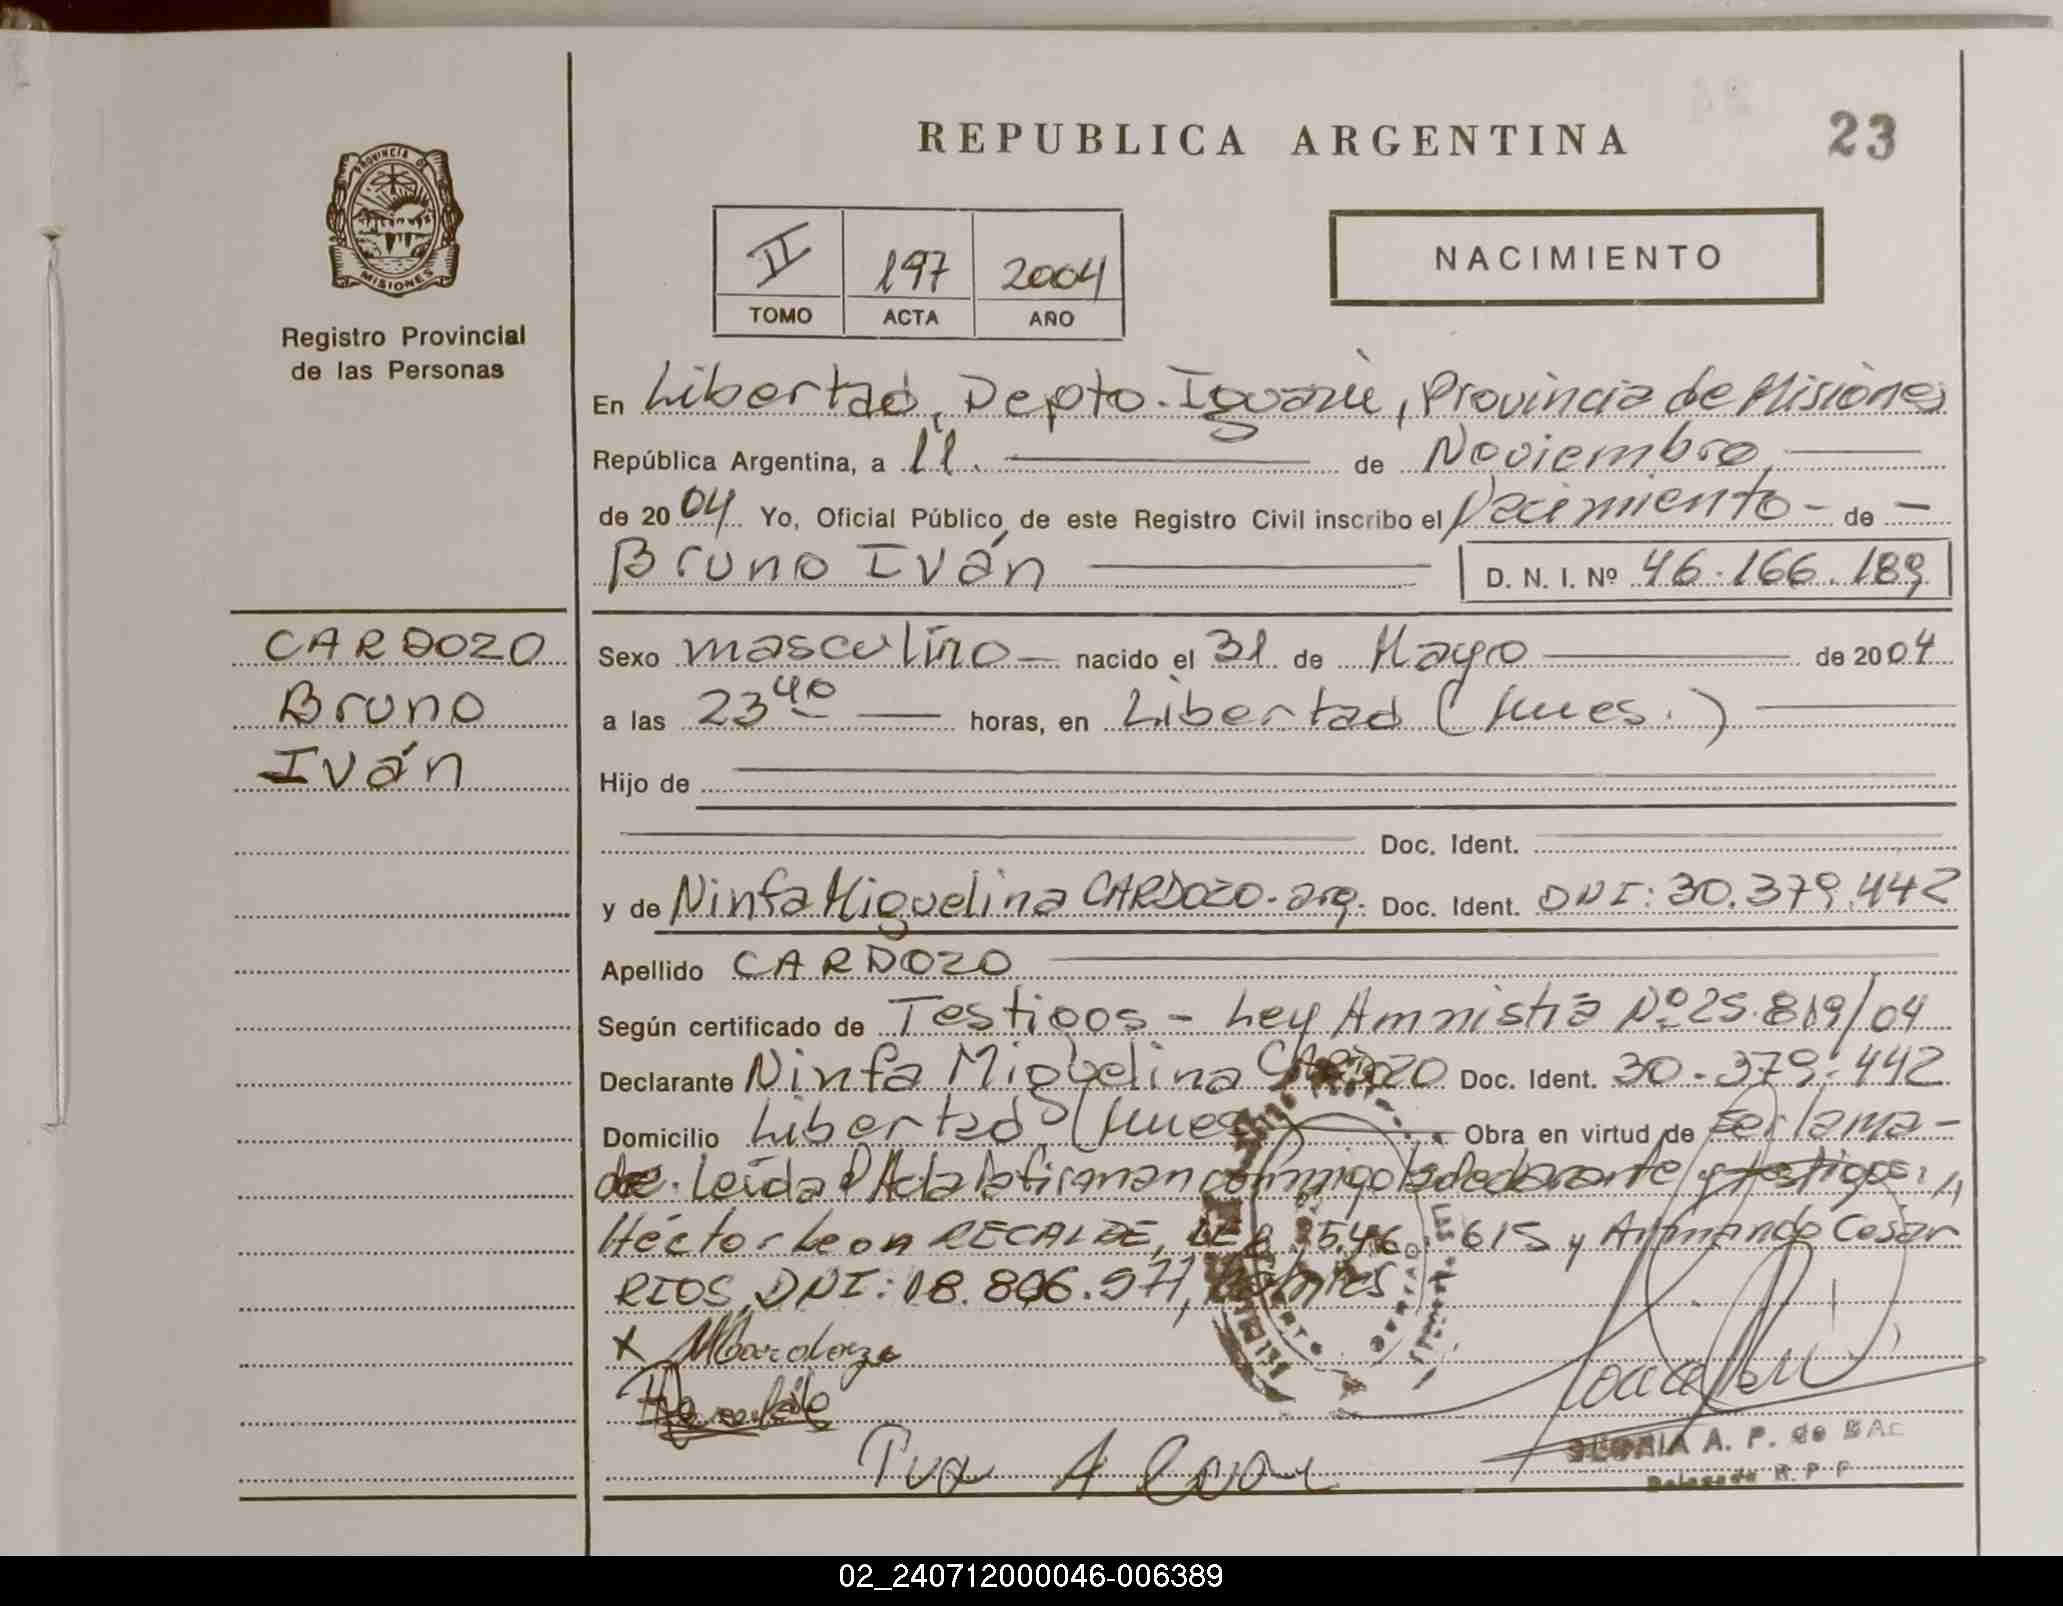 REPUBLICA ARGENTINA
23
PROVINCIA DE
MISIONES
Registro Provincial
de las Personas
II 197 2004
TOMO ACTA AÑO
NACIMIENTO
En Libertad, Depto. Iguazú, Provincia de Misiones
República Argentina, a 11. de Noviembre
de 2004 Yo, Oficial Público de este Registro Civil inscribo el Nacimiento - de -
Bruno Iván D. N. I. Nº 46.166.189
CARDOZO
Bruno
Iván
Sexo masculino nacido el 31 de Mayo de 2004
a las 23 40 horas, en Libertad (Mnes.)
Hijo de
Doc. Ident.
y de Ninfa Miguelina CARDOZO. arg. Doc. Ident. DNI: 30.379.442
Apellido CARDOZO
Según certificado de Testigos - Ley Amnistía Nº 25.819/04
Declarante Ninfa Miguelina CARDOZO Doc. Ident. 30.379.442
Domicilio Libertad (Mnes Obra en virtud de ser la ma-
dre. Leída el Acta la firman conmigo la declarante y testigos:
Héctor Leon RECALDE, LE 8.546.615 y Armando Cesar
RIOS, DNI: 18.806.971,
X
GLORIA A. P. de BAC
Delegada R. P. P
02_240712000046-006389